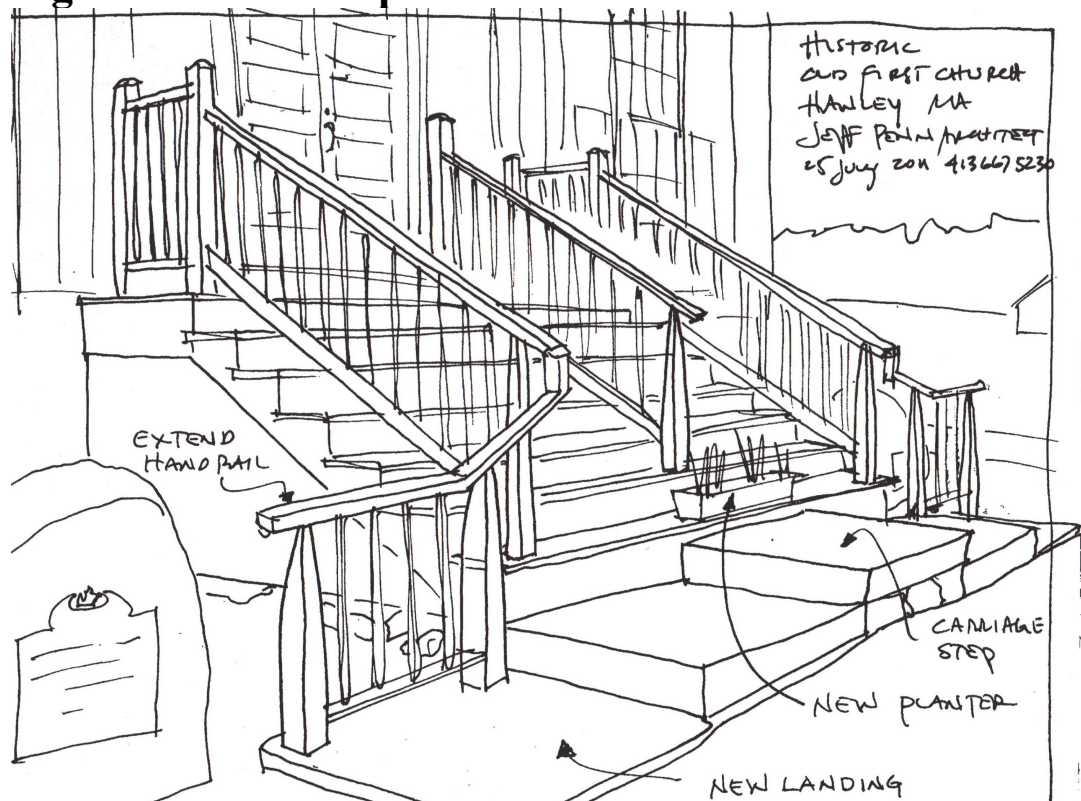 HISTORIC
OLD FIRST CHURCH
HAWLEY MA
JEFF PENN/ARCHITECT
25 July 2011 413 667 5230
EXTEND
HANDRAIL
CARRIAGE
STEP
NEW PLANTER
NEW LANDING